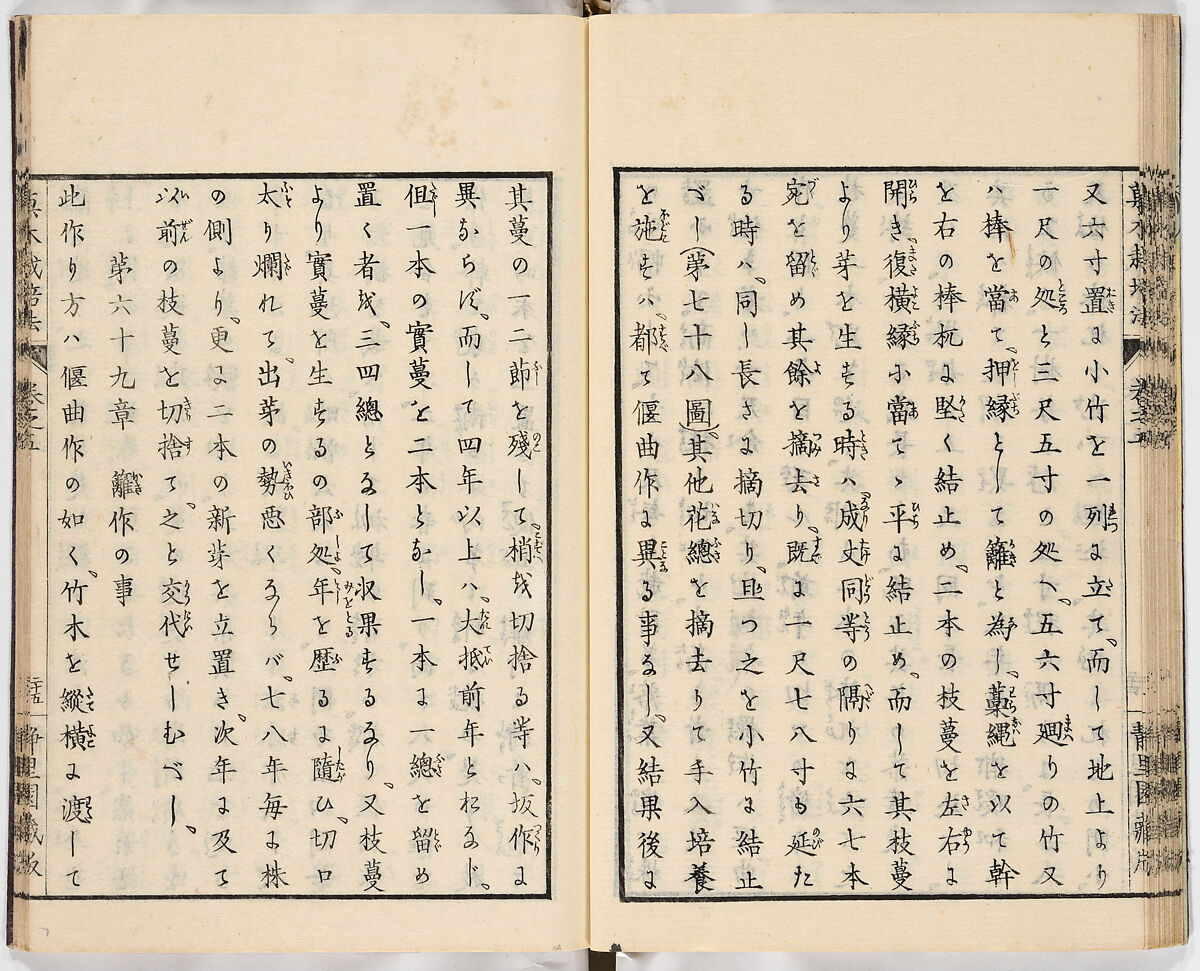 又六寸置に小竹を一列に立て、而して地上より
一尺の処と三尺五寸の処へ、五六寸廻りの竹又
ハ棒を當て、押縁として籬と為し、藁縄を以て幹
を右の棒杭に堅く結止め、二本の枝蔓を左右に
開き、復横縁に當てゝ平に結止め、而して其枝蔓
より芽を生ずる時ハ成丈同等の隔りに六七本
宛を留め其餘を摘去り、既に一尺七八寸も延た
る時ハ、同し長さに摘切り、且つ之を小竹に結止
べし(第七十八圖)其他花總を摘去りて手入培養
を施すハ、都て偃曲作に異る事なし、又結果後に
其蔓の一二節を殘して、梢を切捨る等ハ、坂作に
異ならず、而して四年以上ハ、大抵前年と同じ、
但一本の實蔓を二本となし、一本に一總を留め
置く者を、三四總となして収果するなり、又枝蔓
より實蔓を生ずるの部処、年を歴るに隨ひ、切口
太り爛れて、出芽の勢惡くならバ、七八年毎に株
の側より、更に二本の新芽を立置き、次年に及て
以前の枝蔓を切捨て、之と交代せしむべし、
第六十九章 籬作の事
此作り方ハ偃曲作の如く、竹木を縱横に渡して